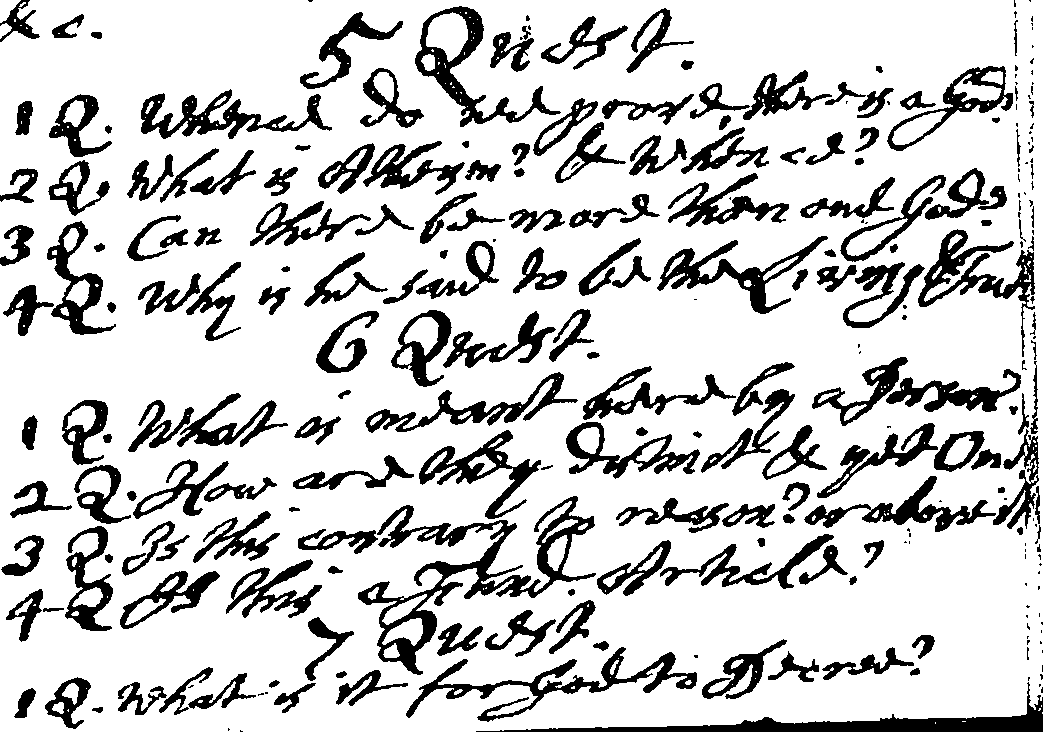 &c.
5 Quest.
1 Q. Whence do wee prove, there is a God?
2 Q. What is Atheism? & Whence?
3 Q. Can there be more then one God?
4 Q. Why is he said to be the Living & True
6 Quest.
1 Q. What is meant here by a Person?
2 Q. How are they distinct & yet One
3 Q. Is this contrary to reason? or above it
4 Q Is this a Fund. Article?
7 Quest.
1 Q. What is it for God to Decree?